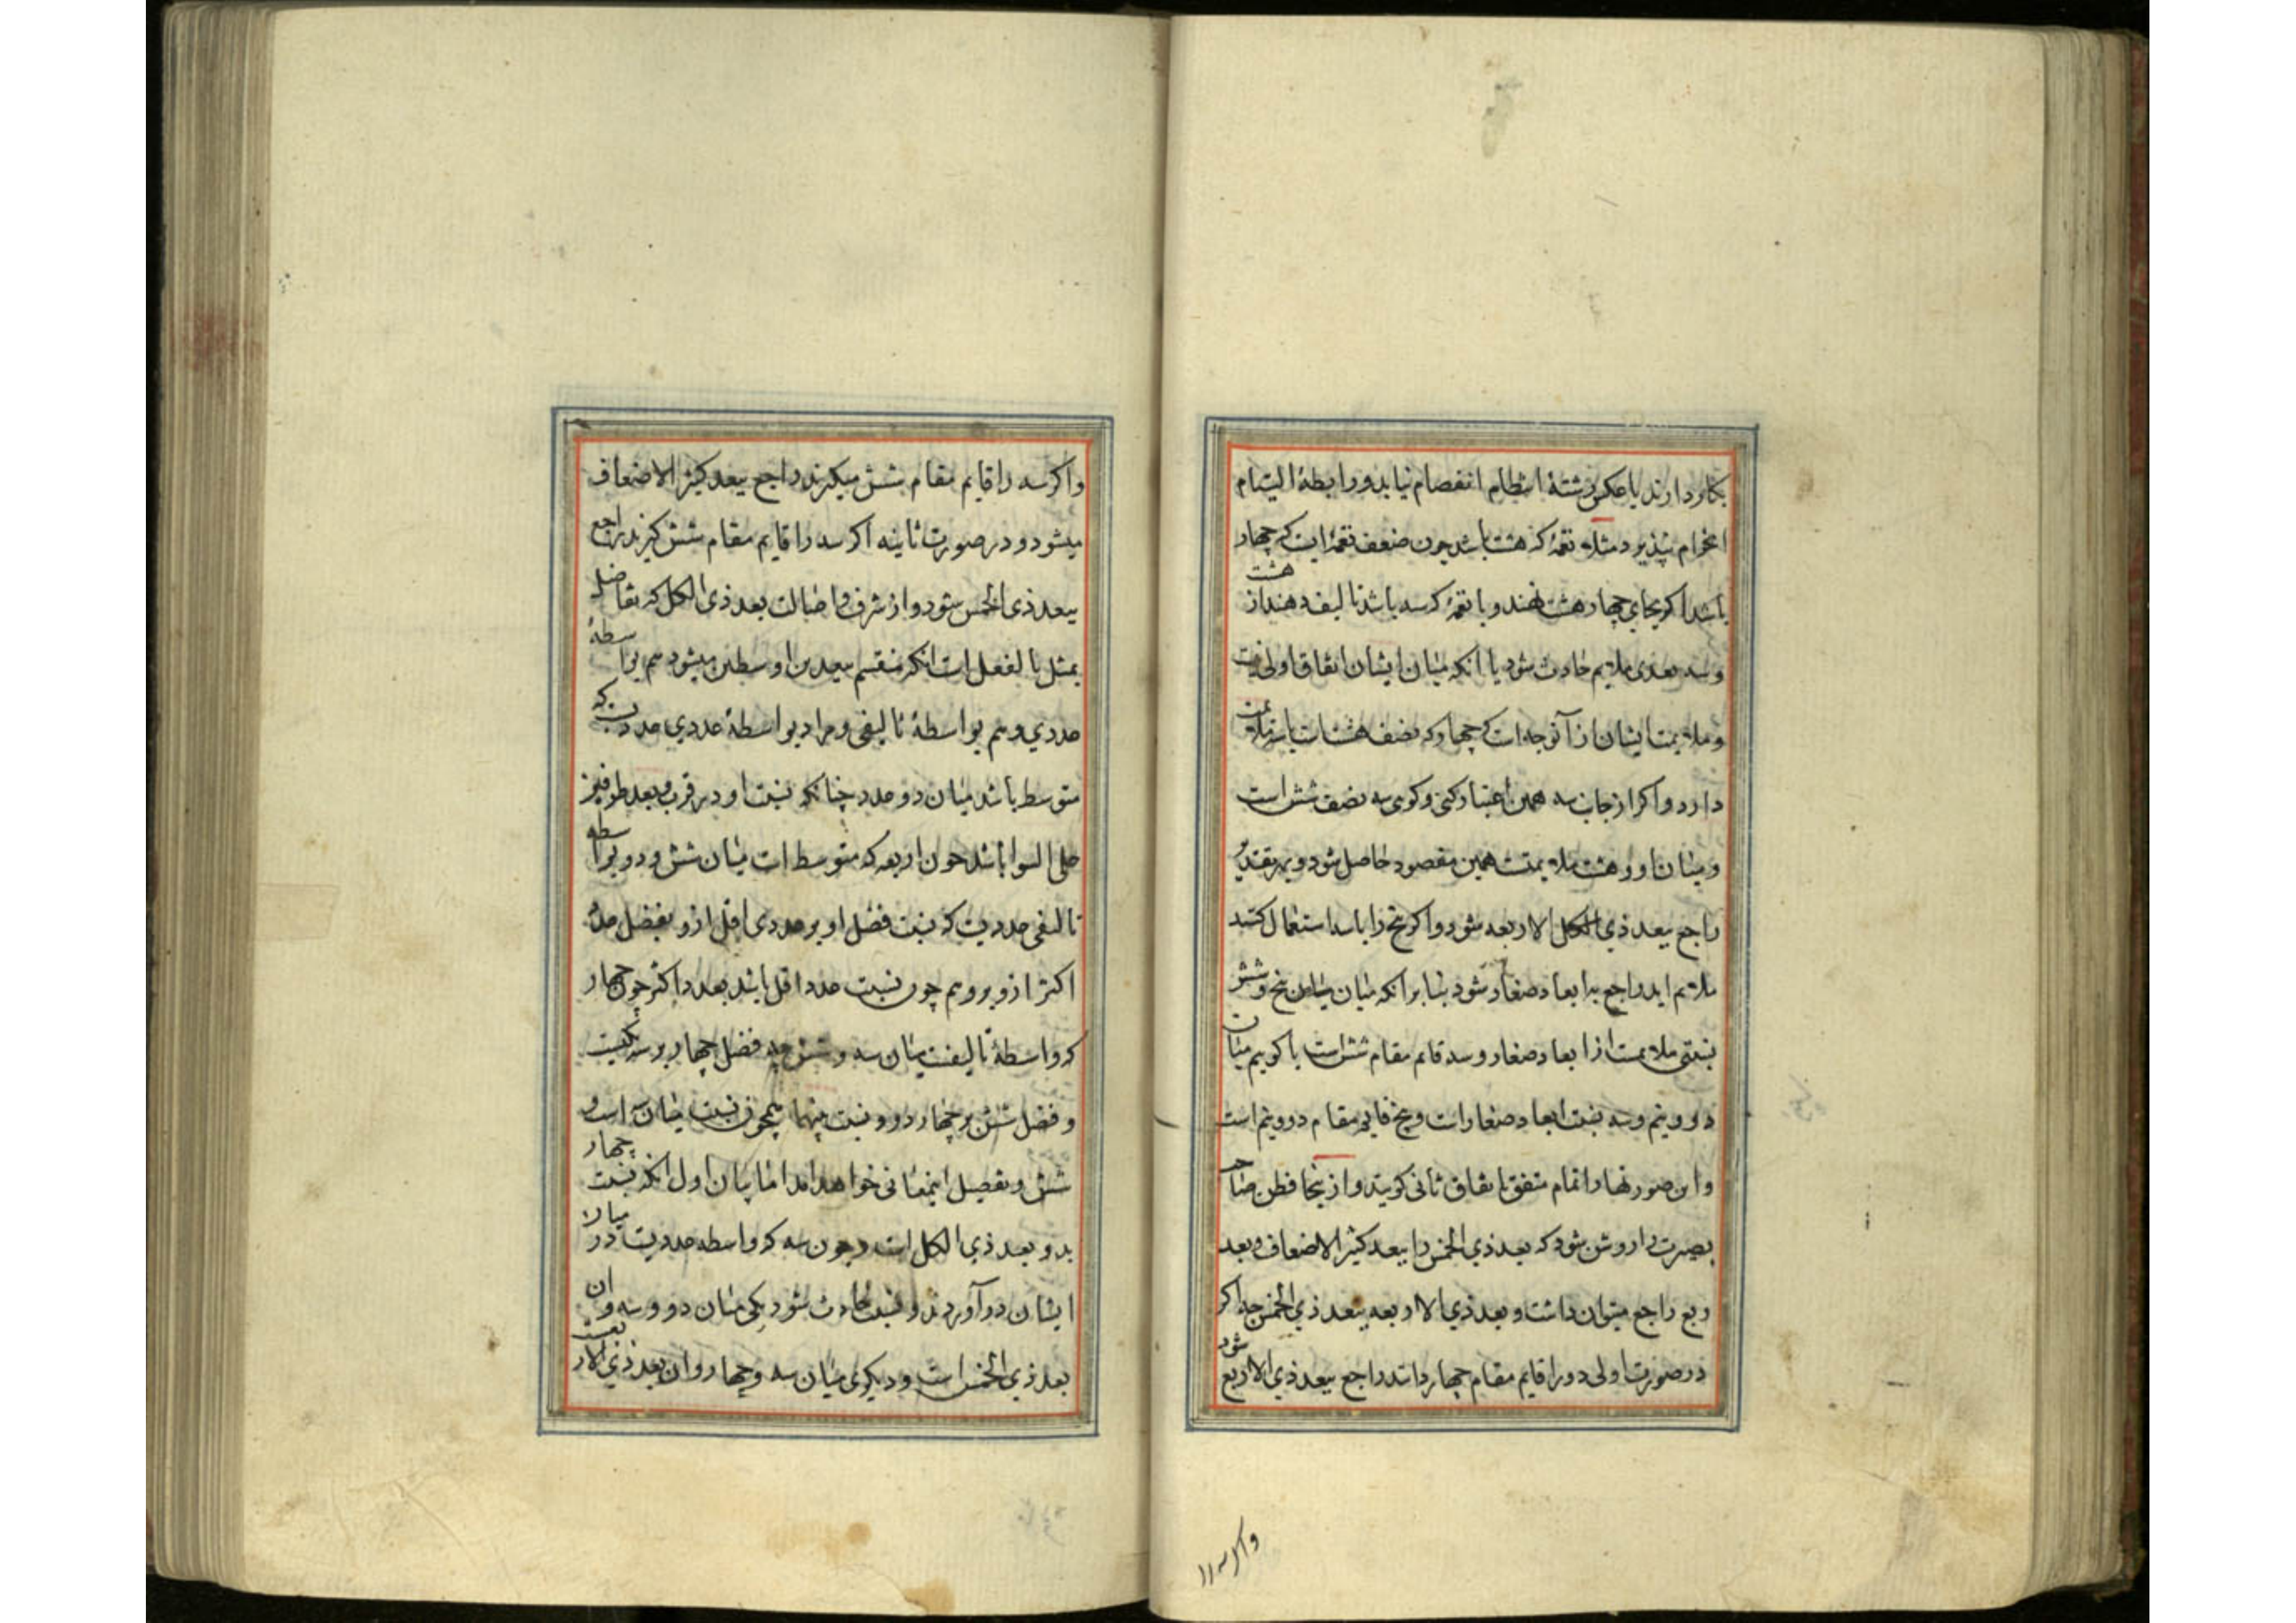 بکار دارند یا عکس رشتهٔ انتظام انفصام نیابد و رابطهٔ التیام
انخرام نپذیرد مثلا نغمهٔ که هشت باشد چون ضعف نغمهٔ است که چهار
باشد اکر بجای چهار هشت نهند و با نغمهٔ که سه باشد تالیف دهند از هشت
و سه بعدی ملایم حادث شود با انکه میان ایشان اتفاق اولی نیست
و ملایمت ایشان از آنوجه است که چهار که نصف هشت است با سه ملایمت
دارد و اکر از جانب سه همین اعتبار کنی و کوی سه نصف شش است
و میان او و هشت ملایمتست همین مقصود حاصل شود و بهر تقدیر
راجع ببعد ذی الکل الاربعه شود و اکر پنج را با سه استعمال کنند
ملایم اید راجع به ابعاد صغار شود بنا بر انکه میان پنج و شش
نسبتی ملایمست از ابعاد صغار و سه قایم مقام شش است یا کویم میان
دو و نیم و سه نسبت ابعاد صغار است و پنج قایم مقام دو و نیم است
و این صورتها را تمام متفق باتفاق ثانی کویند و از ینجا فطن صاحب
بصیرت را روشن شود که بعد ذی الخمس را ببعد کثیر الاضعاف و بعد
ربع راجع میتوان داشت و بعد ذی الاربعه ببعد ذی الخمس چه اکر
در صورت اولی دو را قایم مقام چهار دانند راجع ببعد ذی الاربع شود
واکر سه را
واکر سه را قایم مقام شش میکیرند راجع ببعد کثیر الاضعاف
میشود و در صورت ثانیه اکر سه را قایم مقام شش کیرند راجع
ببعد ذی الخمس شود و از شرف و اصالت بعد ذی الکل که تفاضل
بمثل بالفعل است انکه منقسم ببعدین اوسطین میشود هم بواسطهٔ
عددی و هم بواسطهٔ تالیفی و مراد بواسطهٔ عددی عددیست که
متوسط باشد میان دو عدد چنانکه نسبت او در قرب و بعد طرفین
علی السوا باشد چون اربعه که متوسط است میان شش و دو و بواسطه
تالیفی عددیست که نسبت فضل او بر عددی اقل ازو بفضل عدد
اکثر ازو برو هم چون نسبت عدد اقل باشد بعدد اکثر چون چهار
که واسطهٔ تالیفست میان سه و شش چه فضل چهار بر سه یکیست
و فضل شش بر چهار دو و نسبت بینهما همچون نسبت میان سه است و
شش و تفصیل اینمعانی خواهد امد اما بیان اول انکه نسبت چهار
بدو بعد ذی الکل است و چون سه که واسطه عددیست در میان
ایشان در آوردند دو نسبت حادث شود یکی میان دو و سه و ان
بعد ذی الخمس است و دیکری میان سه و چهار و ان بعد ذی الاربعست